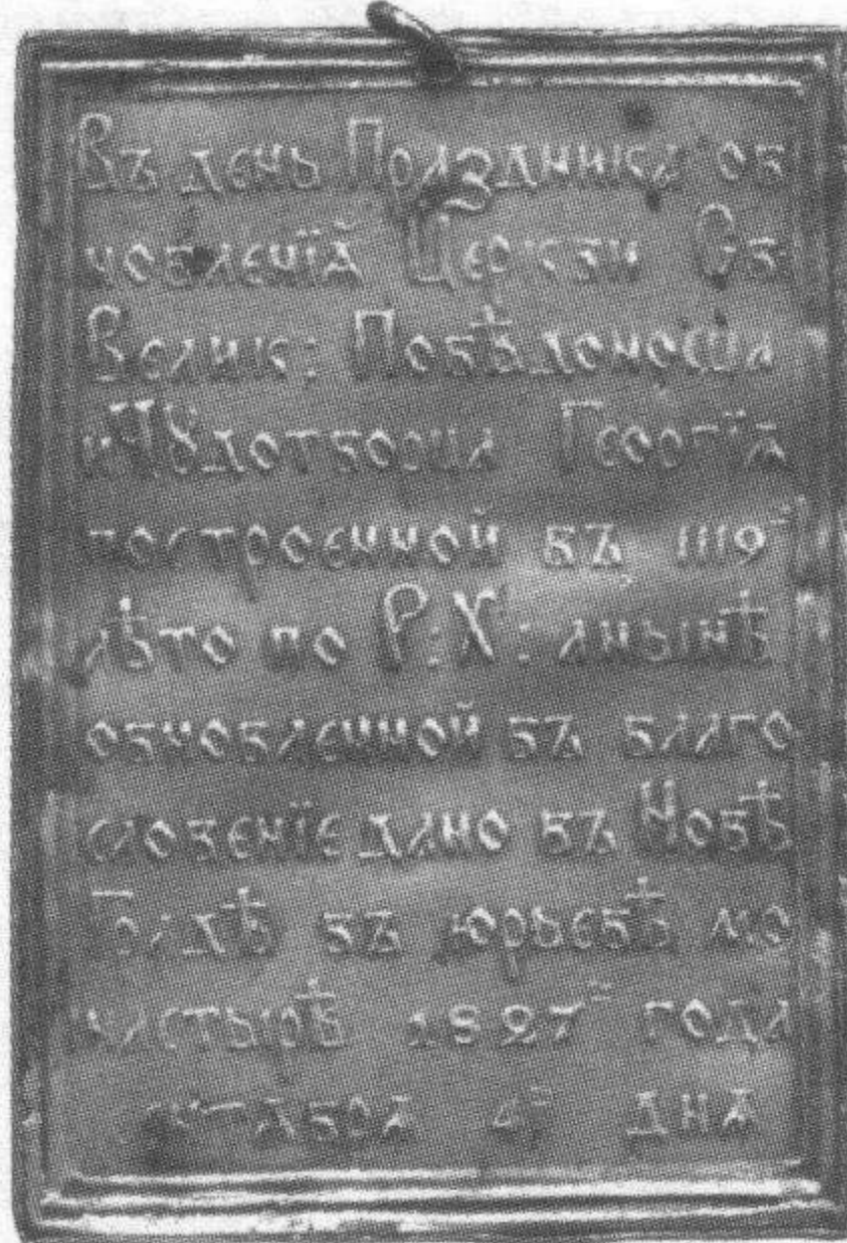 Въ день Праздника об
новленїѧ Церкви Св
Велик: Побѣдоносца
и Чꙋдотворца Георгїѧ
построенной въ 1119
лѣто по Р: Х: а нынѣ
обновленной въ благо
словенїе дано въ Новѣ
Градѣ въ Юрьевѣ мо
настырѣ 1827 года
4 днѧ